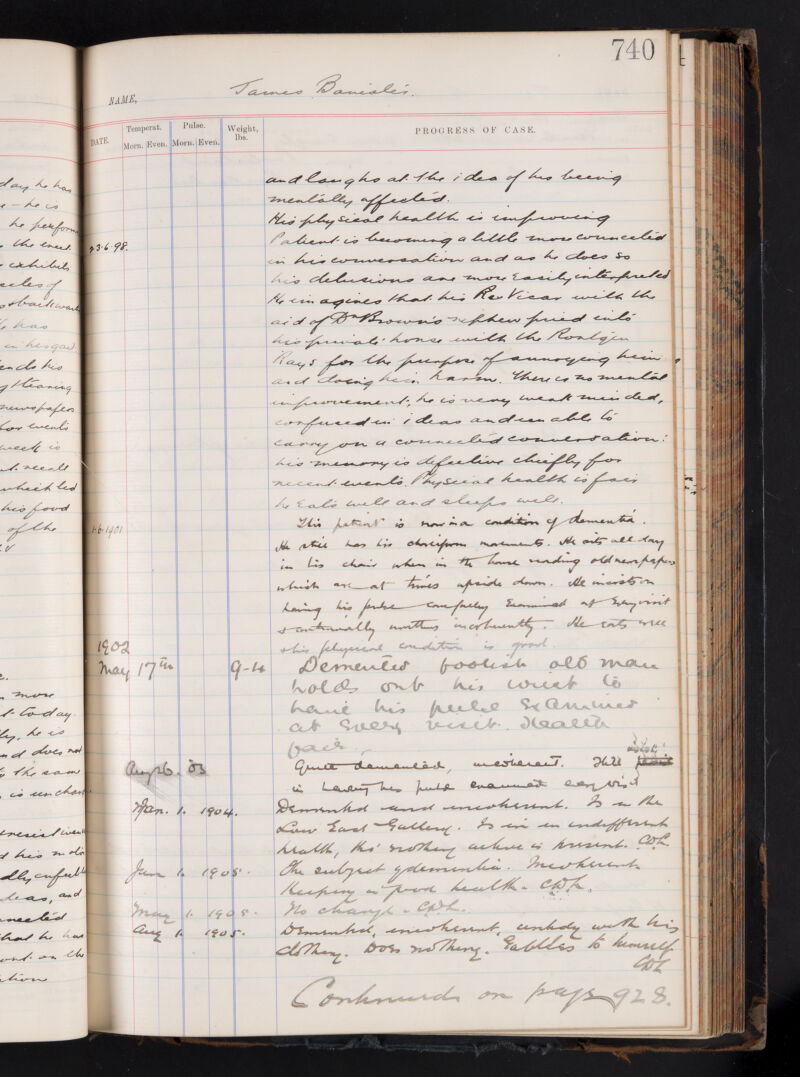 day he has
e - he is
he perform
the exed
exhibits
cles of
& backward
He has
in his gait
ends his
y tearing
newspapers
for events
week is
t recall
which led
his food
of the
740
NAME, James Banister.
DATE. Temperat. Morn. Even. Pulse. Morn. Even. Weight, lbs. PROGRESS OF CASE.
and laughs at the idea of his being
mentally affected.
His physical health is improving
23.6.98. Patient is becoming a little more connected
in his conversation and as he does so
his delusions are more easily interpreted
He imagines that his Rev Vicar with the
aid of Dr Brown's nephew pried into
his private house with the Rontgen
Rays for the purpose of annoying him
and doing him harm. There is no mental
improvement, he is very weak minded,
confused in ideas and unable to
carry on a connected conversation:
his memory is defective chiefly for
recent events. Physical health is fair
he eats well and sleeps well.
1.6.1901 This patient is now in a condition of dementia.
He still has his choreiform movements. He sits all day
in his chair when in the house reading old newspapers
which are at times upside down. He insists on
having his pulse carefully examined at every visit
& continually mutters incoherently - He eats well
& his physical condition is good.
1902
May 17th 9-4 Demented foolish old man
holds out his wrist to
have his pulse examined
at every visit. Health
fair.
Aug 26. 03 Quite demented, incoherent. Still
in having his pulse examined every visit
Jan. 1. 1904. Demented and incoherent. Is in the
Low East Gallery. Is in indifferent
health, tho' nothing active is present. CDL
Jan 1. 1905. The subject of dementia. Incoherent
Keeping in good health - CDL.
May 1. 1905. No change - CDL.
Aug 1. 1905. Demented, incoherent, untidy with his
clothing. Does nothing. Gabbles to himself
CDL
Continued on page 928.
more
t today.
ly, he is
nd does not
the same
is unchan
d his moti
deas, and
nnected
that he has
ont. on the